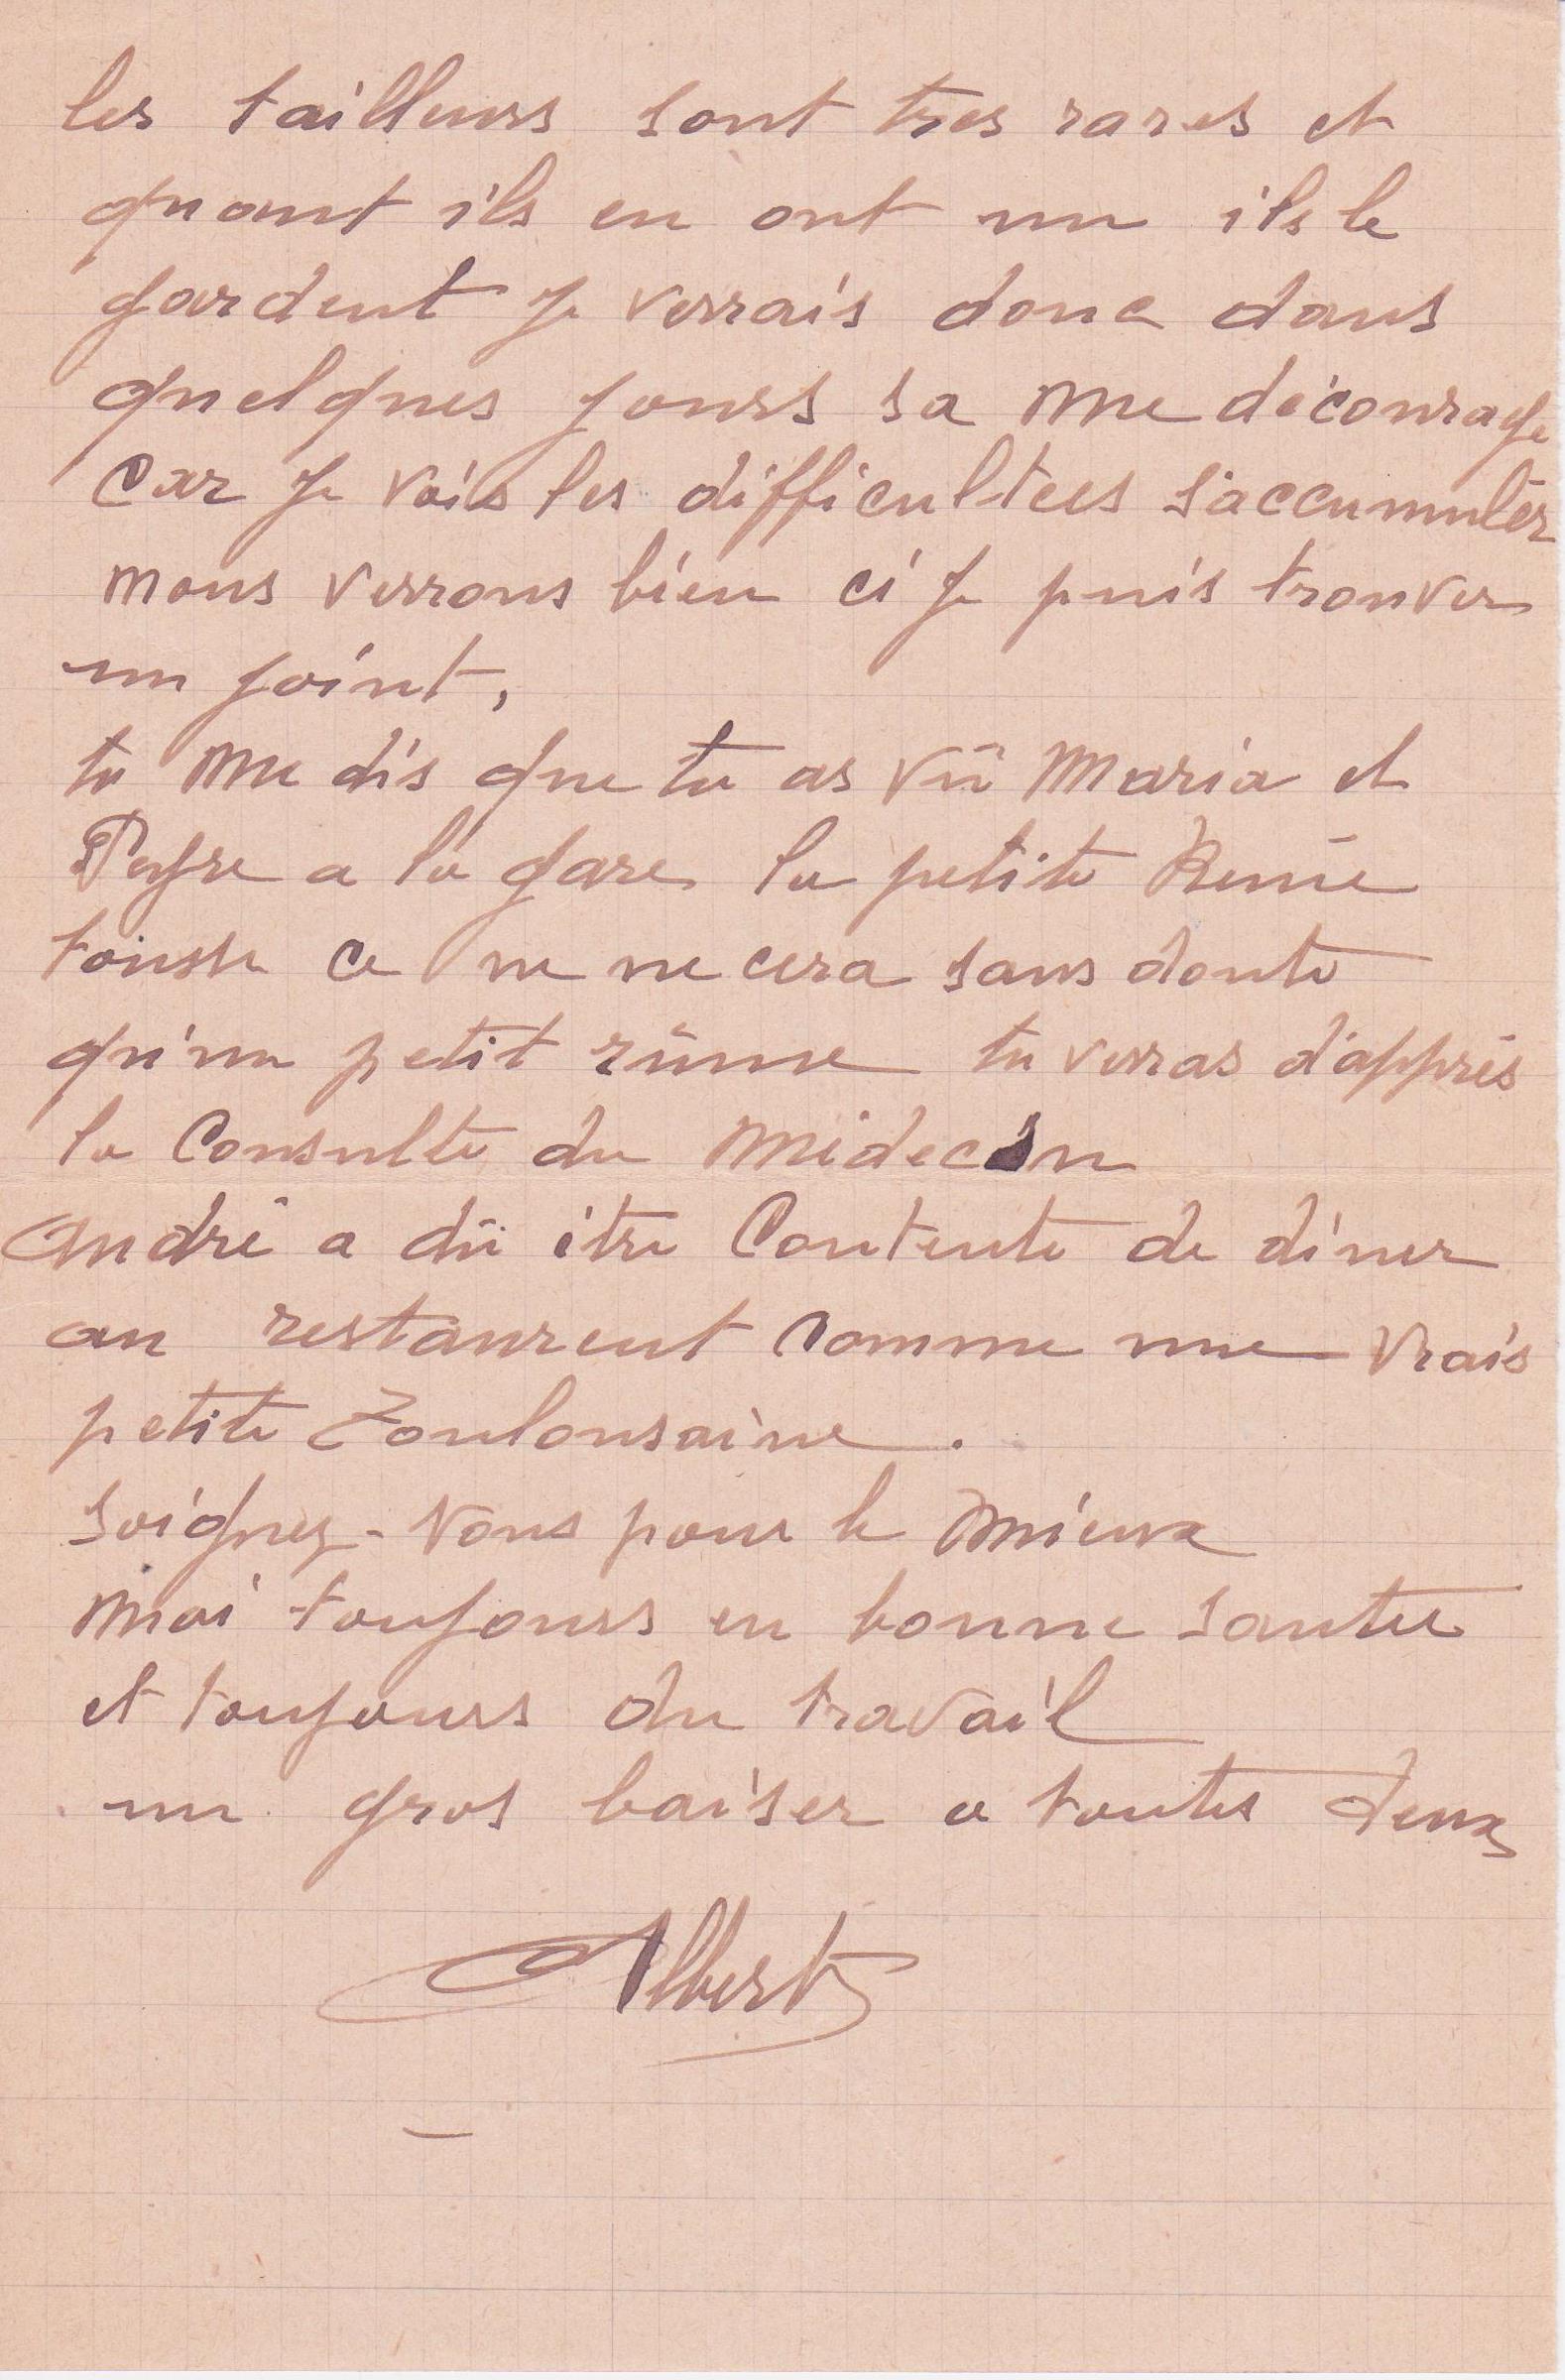 les tailleurs sont tres rares et
quant ils en ont un ils le
gardent je verrais donc dans
quelques jours sa me décourage
car je vois les difficultees s'accumuler
nous verrons bien ci je puis trouver
un joint,
tu me dis que tu as vû Maria et
Peyre a la gare la petite Renée
tousse ce ne ne cera sans doute
qu'un petit rûme tu verras d'apprés
la Consulte du Médecin
André a dû être Contente de diner
au restaurent comme une vrais
petite Toulousaine.
soignez-vous pour le mieux
moi toujours en bonne santee
et toujours du travail
un gros baiser a toutes deux
Albert